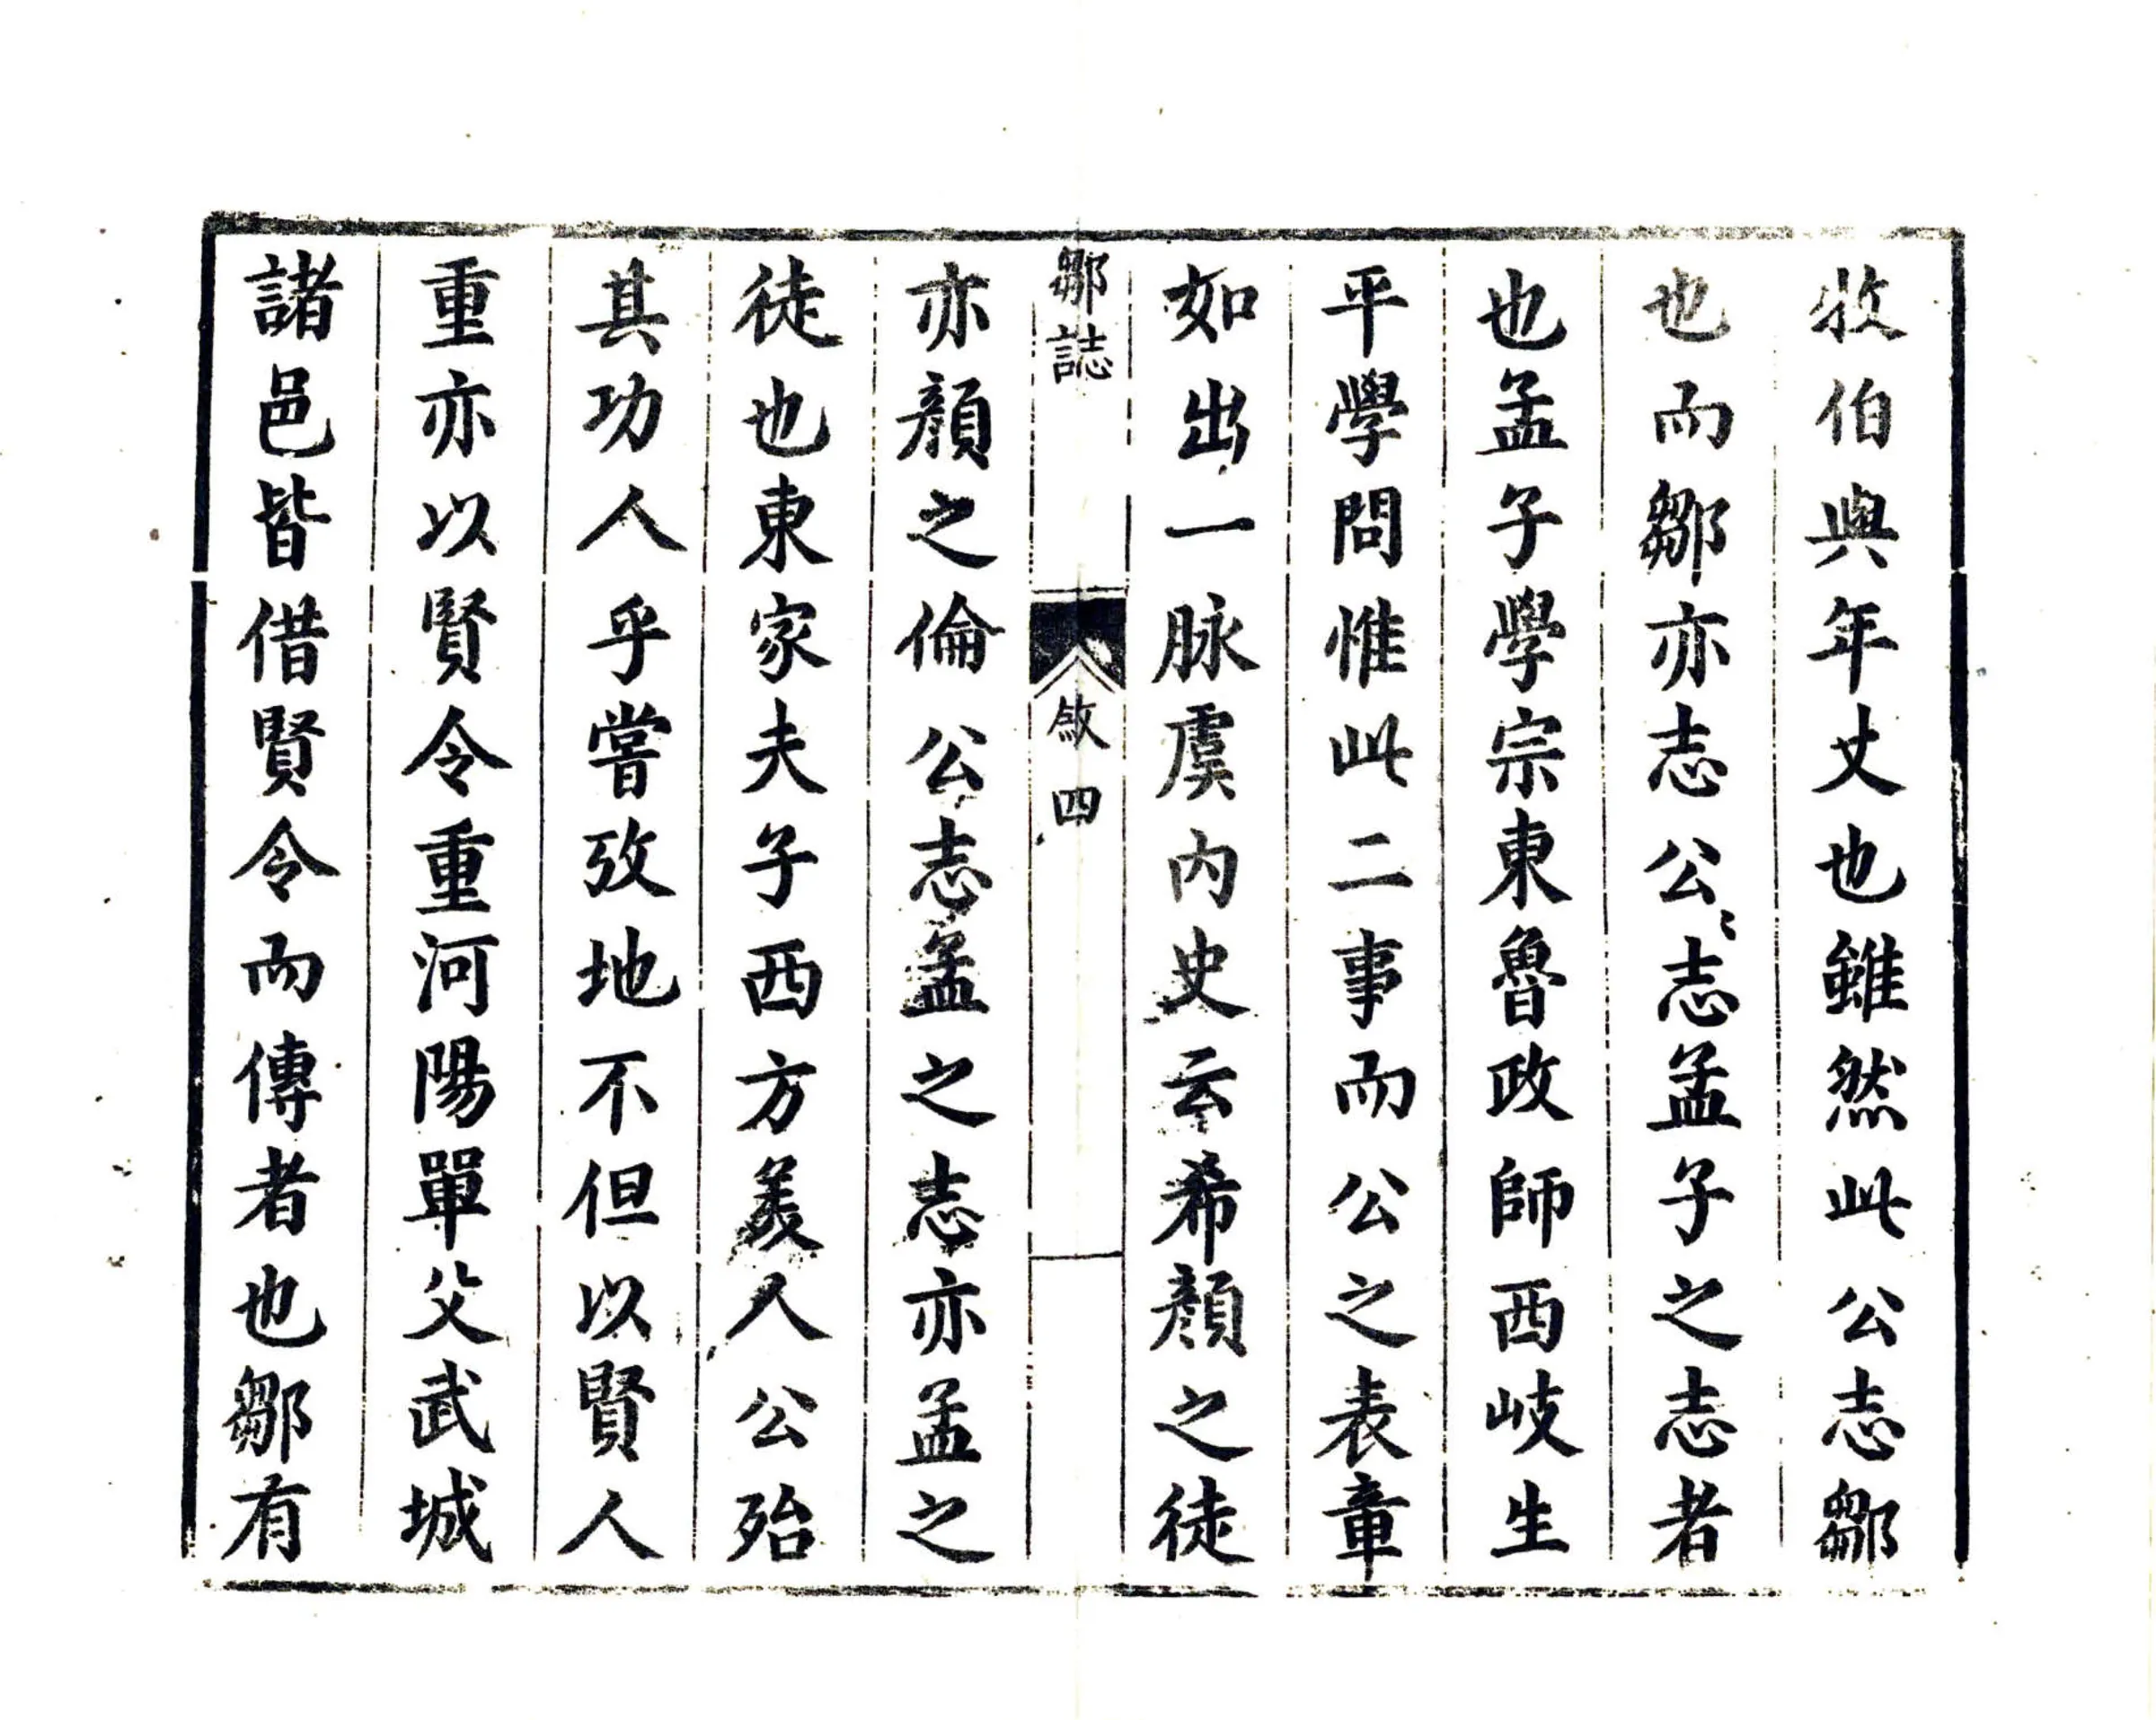 牧伯與年丈也雖然此公志鄒
也而鄒亦志公〻志孟子之志者
也孟子學宗東魯政師西岐生
平學問惟此二事而公之表章
如出一脉虞内史云希顔之徒
鄒誌
敘四
亦顔之倫公志孟之志亦孟之
徒也東家夫子西方美人公殆
其功人乎嘗攷地不但以賢人
重亦以賢令重河陽單父武城
諸邑皆借賢令而傳者也鄒有